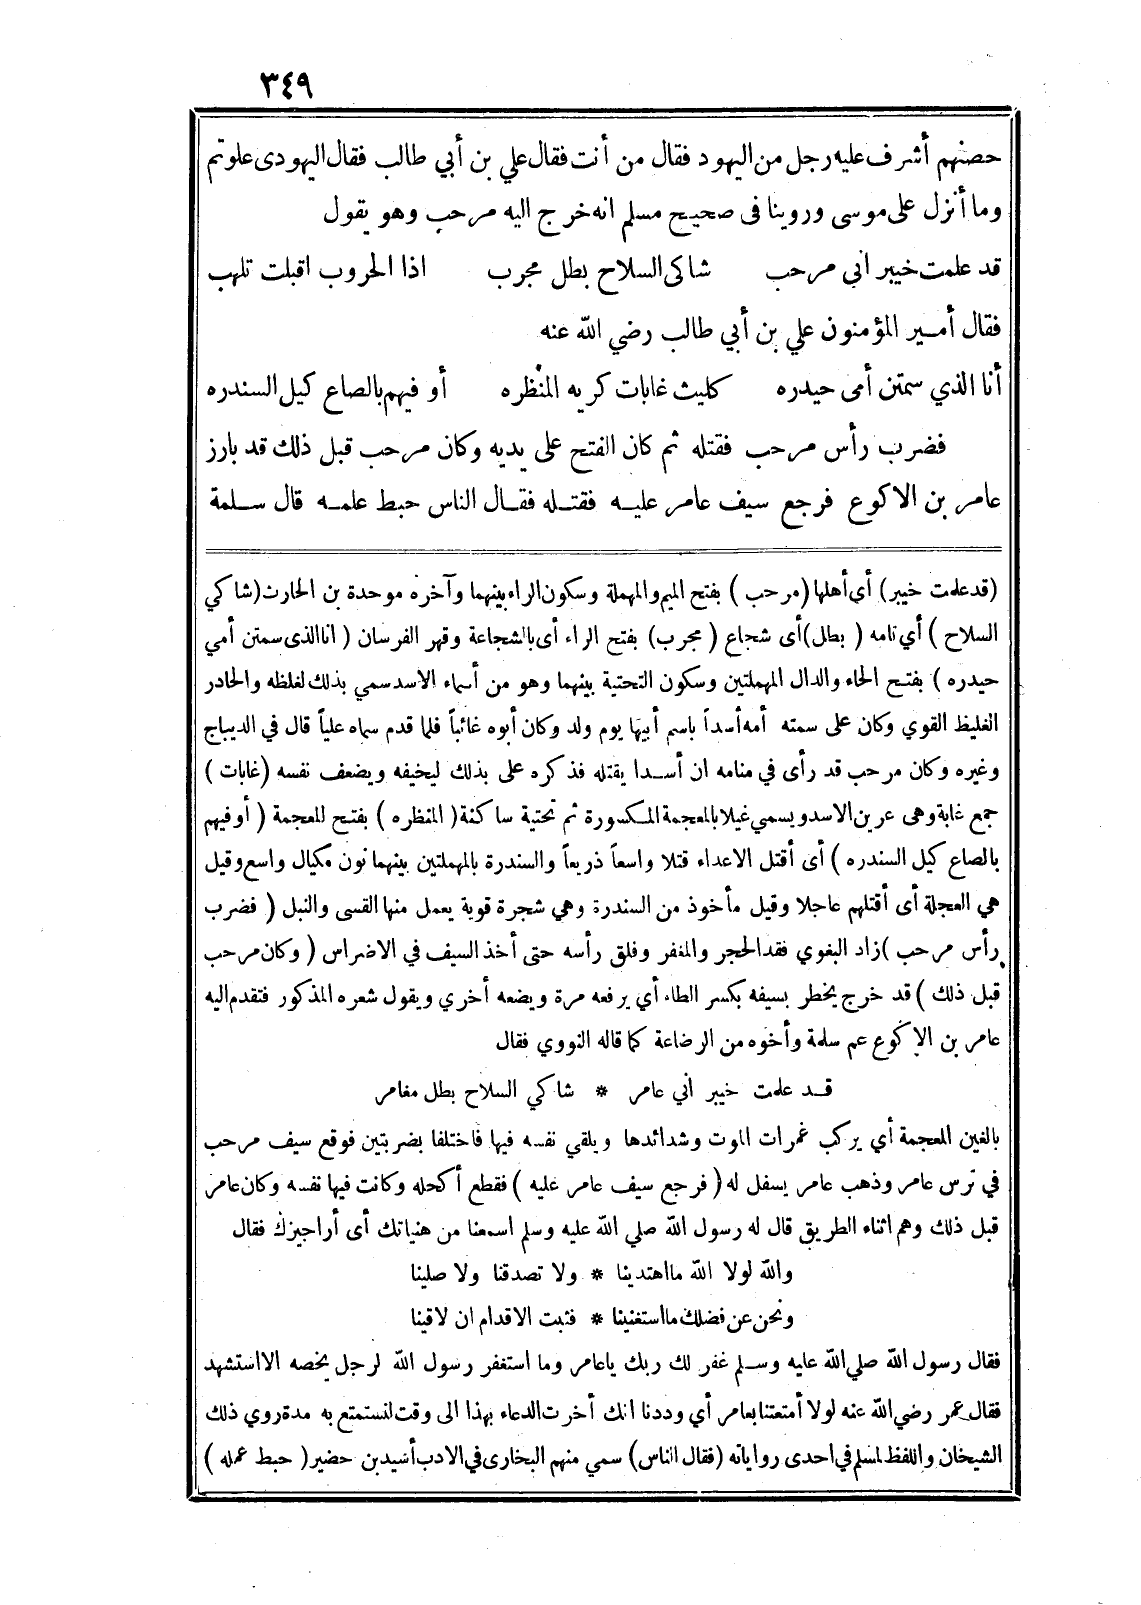 ٣٤٩
حصنهم أشرف عليه رجل من اليهود فقال من أنت فقال علي بن أبي طالب فقال اليهودى علوتم
وما أنزل على موسى وروينا فى صحيح مسلم انه خرج اليه مرحب وهو يقول
قد علمت خيبر اني مرحب شاكى السلاح بطل مجرب اذا الحروب اقبلت تلهب
فقال أمير المؤمنون علي بن أبي طالب رضي الله عنه
أنا الذي سمتن أمى حيدره كليث غابات كريه المنظره أو فيهم بالصاع كيل السندره
فضرب رأس مرحب فقتله ثم كان الفتح على يديه وكان مرحب قبل ذلك قد بارز
عامر بن الاكوع فرجع سيف عامر عليه فقتله فقال الناس حبط علمه قال سلمة
(قد علمت خيبر) أي أهلها (مرحب) بفتح الميم والمهملة وسكون الراء بينهما وآخره موحدة بن الحارث (شاكي
السلاح) أي تامه (بطل) أى شجاع (مجرب) بفتح الراء أى بالشجاعة وقهر الفرسان (انا الذى سمتن أمي
حيدره) بفتح الحاء والدال المهملتين وسكون التحتية بينهما وهو من أسماء الاسد سمي بذلك لغلظه والحادر
الغليظ القوي وكان على سمته أمه أسداً باسم أبيها يوم ولد وكان أبوه غائباً فلما قدم سماه علياً قال في الديباج
وغيره وكان مرحب قد رأى في منامه ان أسدا يقتله فذكره على بذلك ليخيفه ويضعف نفسه (غابات)
جمع غابة وهى عرين الاسد ويسمي غيلا بالمعجمة المكسورة ثم تحتية ساكنة (المنظره) بفتح المعجمة (أو فيهم
بالصاع كيل السندره) أى أقتل الاعداء قتلا واسعاً ذريعاً والسندرة بالمهملتين بينهما نون مكيال واسع وقيل
هي العجلة أى أقتلهم عاجلا وقيل مأخوذ من السندرة وهي شجرة قوية يعمل منها القسى والنبل (فضرب
رأس مرحب) زاد البغوي فقد الحجر والمغفر وفلق رأسه حتى أخذ السيف في الاضراس (وكان مرحب
قبل ذلك) قد خرج يخطر بسيفه بكسر الطاء أي يرفعه مرة ويضعه أخري ويقول شعره المذكور فتقدم اليه
عامر بن الاكوع عم سلمة وأخوه من الرضاعة كما قاله النووي فقال
قد علمت خيبر أني عامر * شاكي السلاح بطل مغامر
بالغين المعجمة أي يركب غمرات الموت وشدائدها ويلقي نفسه فيها فاختلفا بضربتين فوقع سيف مرحب
في ترس عامر وذهب عامر يسفل له (فرجع سيف عامر عليه) فقطع أكحله وكانت فيها نفسه وكان عامر
قبل ذلك وهم اثناء الطريق قال له رسول الله صلي الله عليه وسلم اسمعنا من هنياتك أى أراجيزك فقال
والله لولا الله ما اهتدينا * ولا تصدقنا ولا صلينا
ونحن عن فضلك ما استغنينا * فثبت الاقدام ان لاقينا
فقال رسول الله صلي الله عليه وسلم غفر لك ربك ياعامر وما استغفر رسول الله لرجل يخصه الا استشهد
فقال عمر رضي الله عنه لولا أمتعتنا بعامر أي وددنا انك أخرت الدعاء بهذا الى وقت لنستمتع به مدة روي ذلك
الشيخان واللفظ لمسلم في احدى رواياته (فقال الناس) سمي منهم البخارى في الادب أسيد بن حضير (حبط عمله)